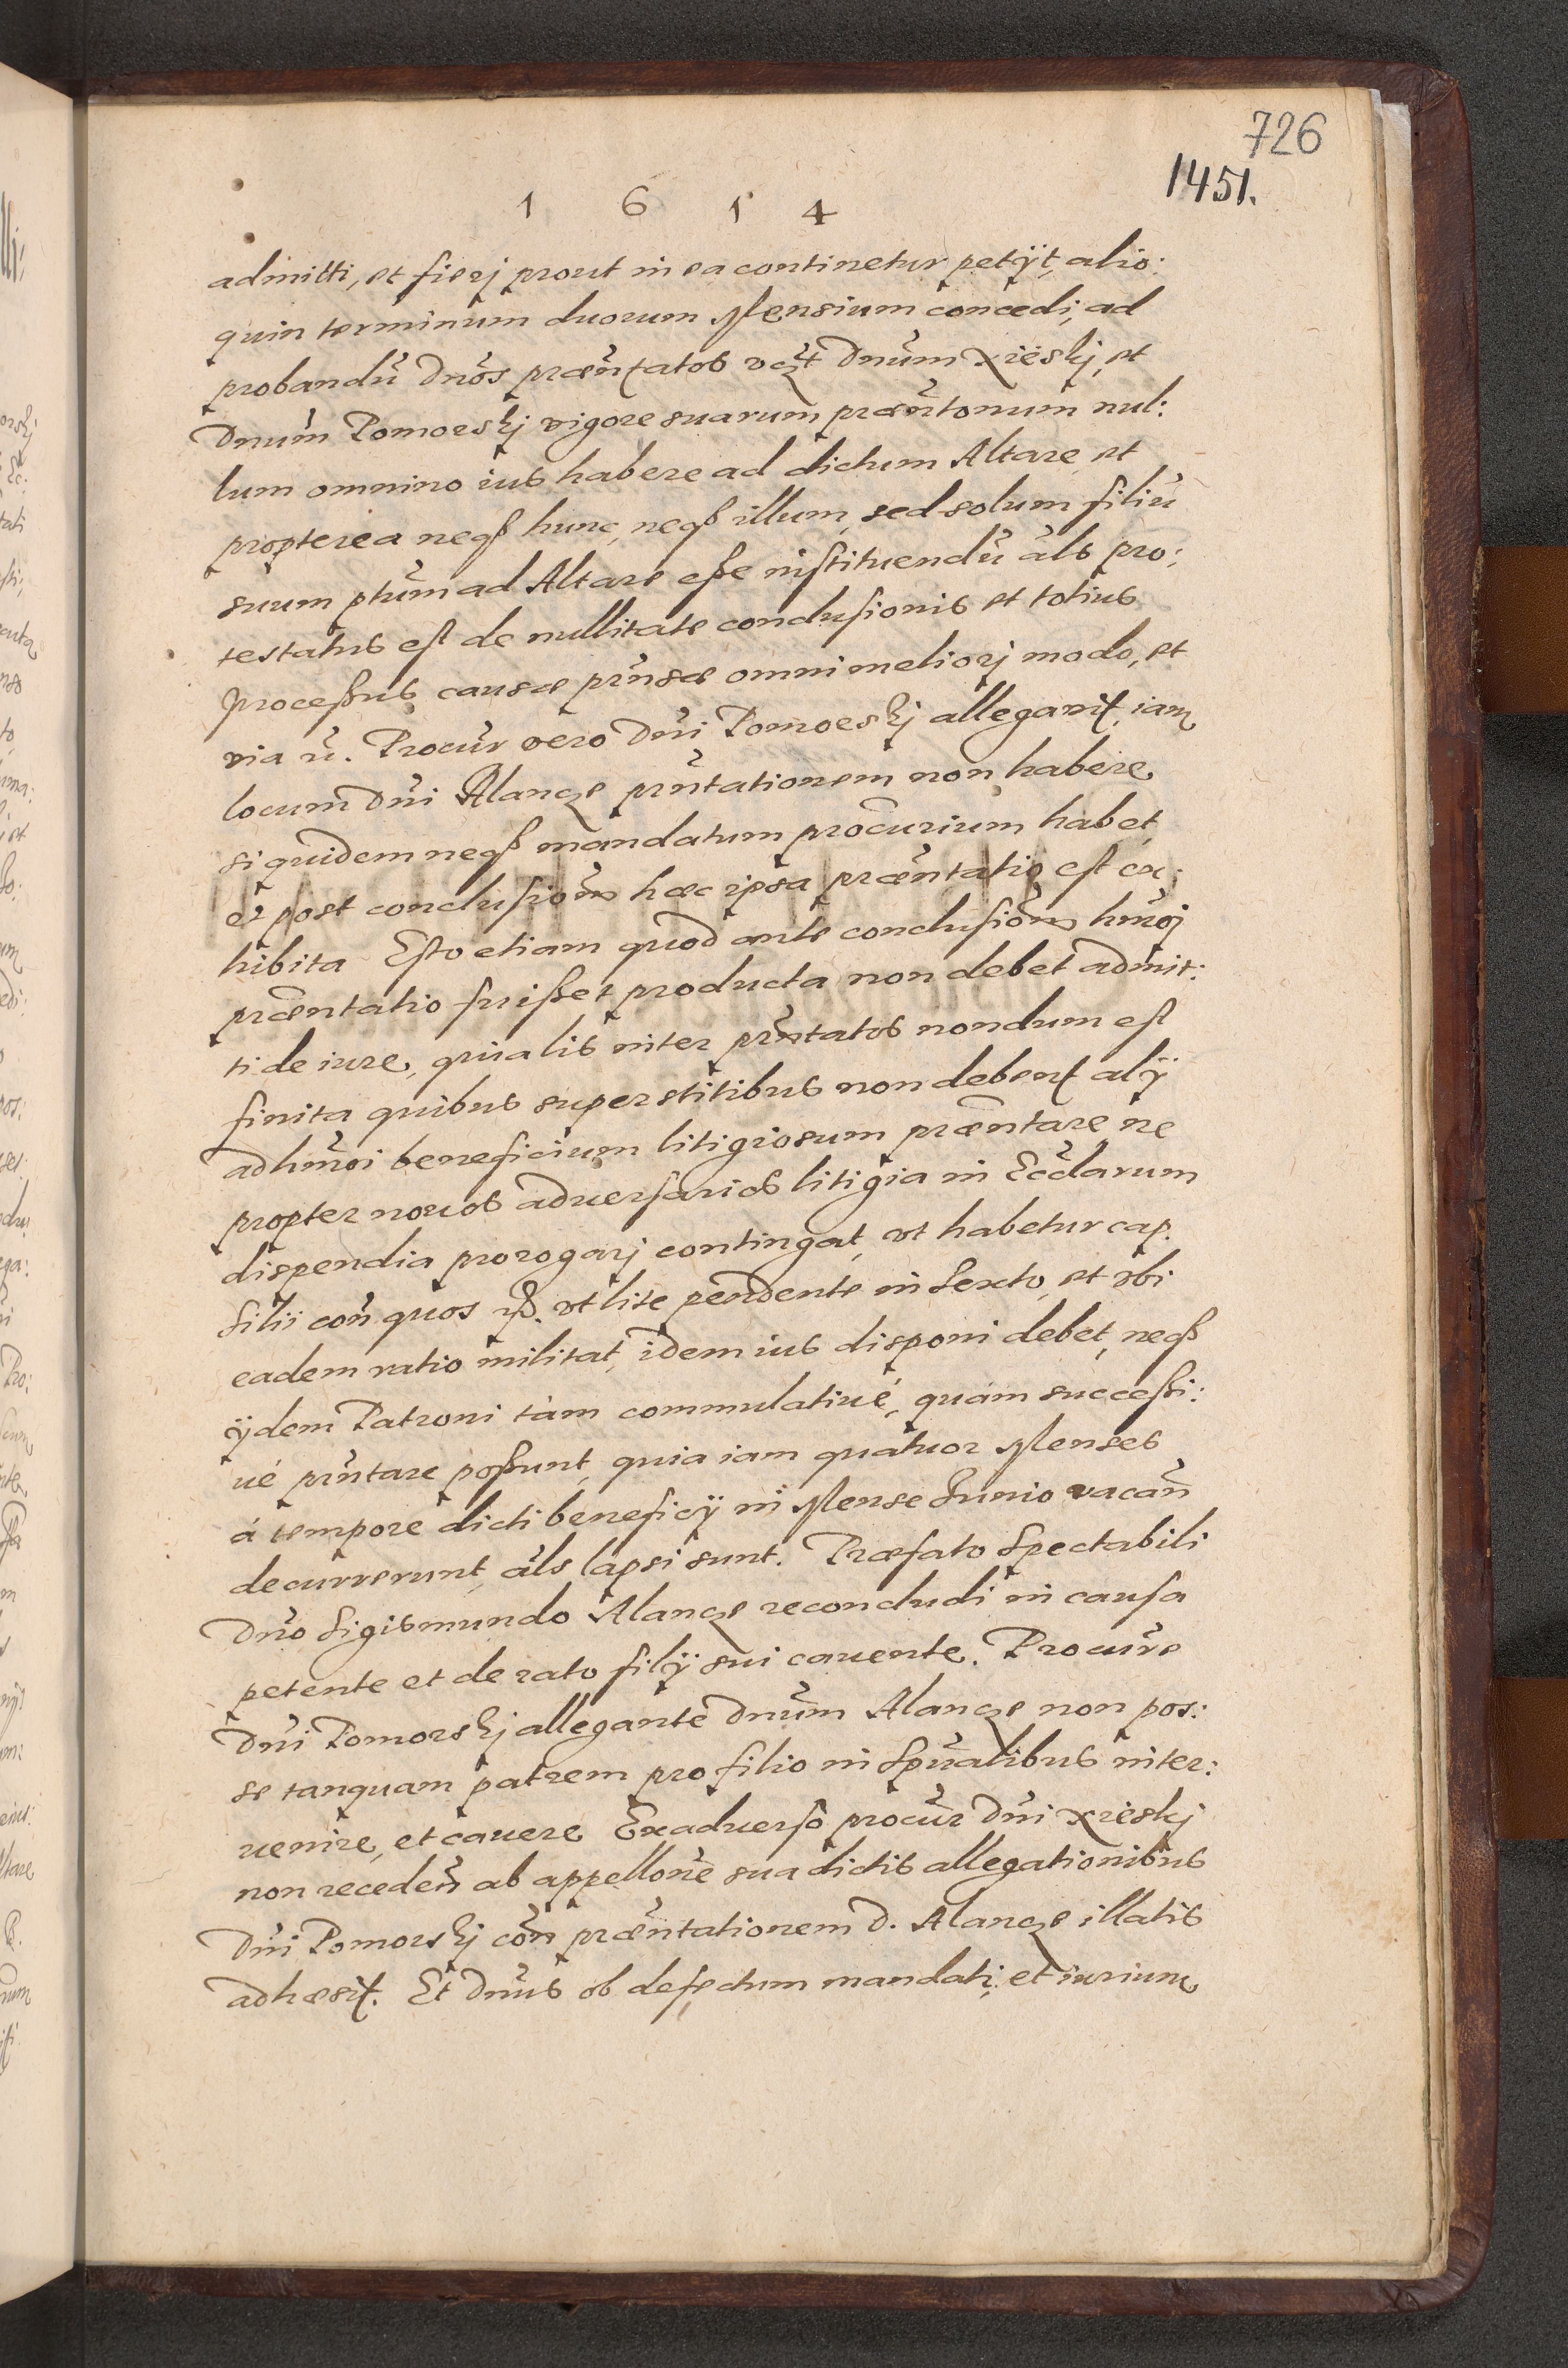 726
1451.
1 6 1 4
admitti, et fierj prout in ea continetur petÿt, alio:
quin terminum duorum Mensium concedi, ad
probandū Dnōs præn̄tatos vcz̄t Dnūm Xięskj, et
Dnūm Pomoeskj vigore suarum præn̄tonum nul:
lum omnino ius habere ad dictum Altare, et
propterea neqß hunc, neqß illum, sed solum filiū
suum ptūm ad Altare eße instituendū āls pro:
testatus est de nullitate conclusionis et totius
processus causæ prn̄sæ omni meliorj modo, et
via n̄. Procūr vero Dnī Pomoeskj allegavit, iam
locum Dnī Alancze prn̄tationem non habere,
siquidem neqß mandatum procūrium habet,
et post conclusiōn hæc ipsa præn̄tatio est ex:
hibita Esto etiam quod ante conclusiōn hmōj
præn̄tatio fuißet producta non debet admit:
ti de iure, quia lis inter prn̄tatos nondum est
finita quibus superstitibus non debent alÿ
ad hmōi beneficium litigiosum præn̄tare ne
propter nouos aduersarios litigia in Eccl̄arum
dispendia prorogarj contingat, vt habetur cap.
Si lij con̄ quos ẜß. vt lite pendente in Sexto, et vbi
eadem ratio militat, idem ius disponi debet, neqß
ÿdem Patroni tàm commulatiué, quám successi:
ué prn̄tare poßunt, quia iam quatuor Menses
á tempore dicti beneficÿ in Mense Junio vacan̄
decurrerunt, āls lapsi sunt. Præfato Spectabili
Dnō Sigismundo Alancze reconcludi in causa
petente et de rato filÿ sui cauente. Procūre
Dnī Pomorskj allegante Dnūm Alancze non pos:
se tanquam patrem pro filio in Spūalibus inter:
uenire, et cauere. Exaduerso procūr Dnī Xięskj
non receden̄ ab appellonē sua dictis allegationibus
Dnī Pomorskj cōn præn̄tationem D. Alancze illatis
adhæsit. Et Dnūs ob defectum mandati, et iurium